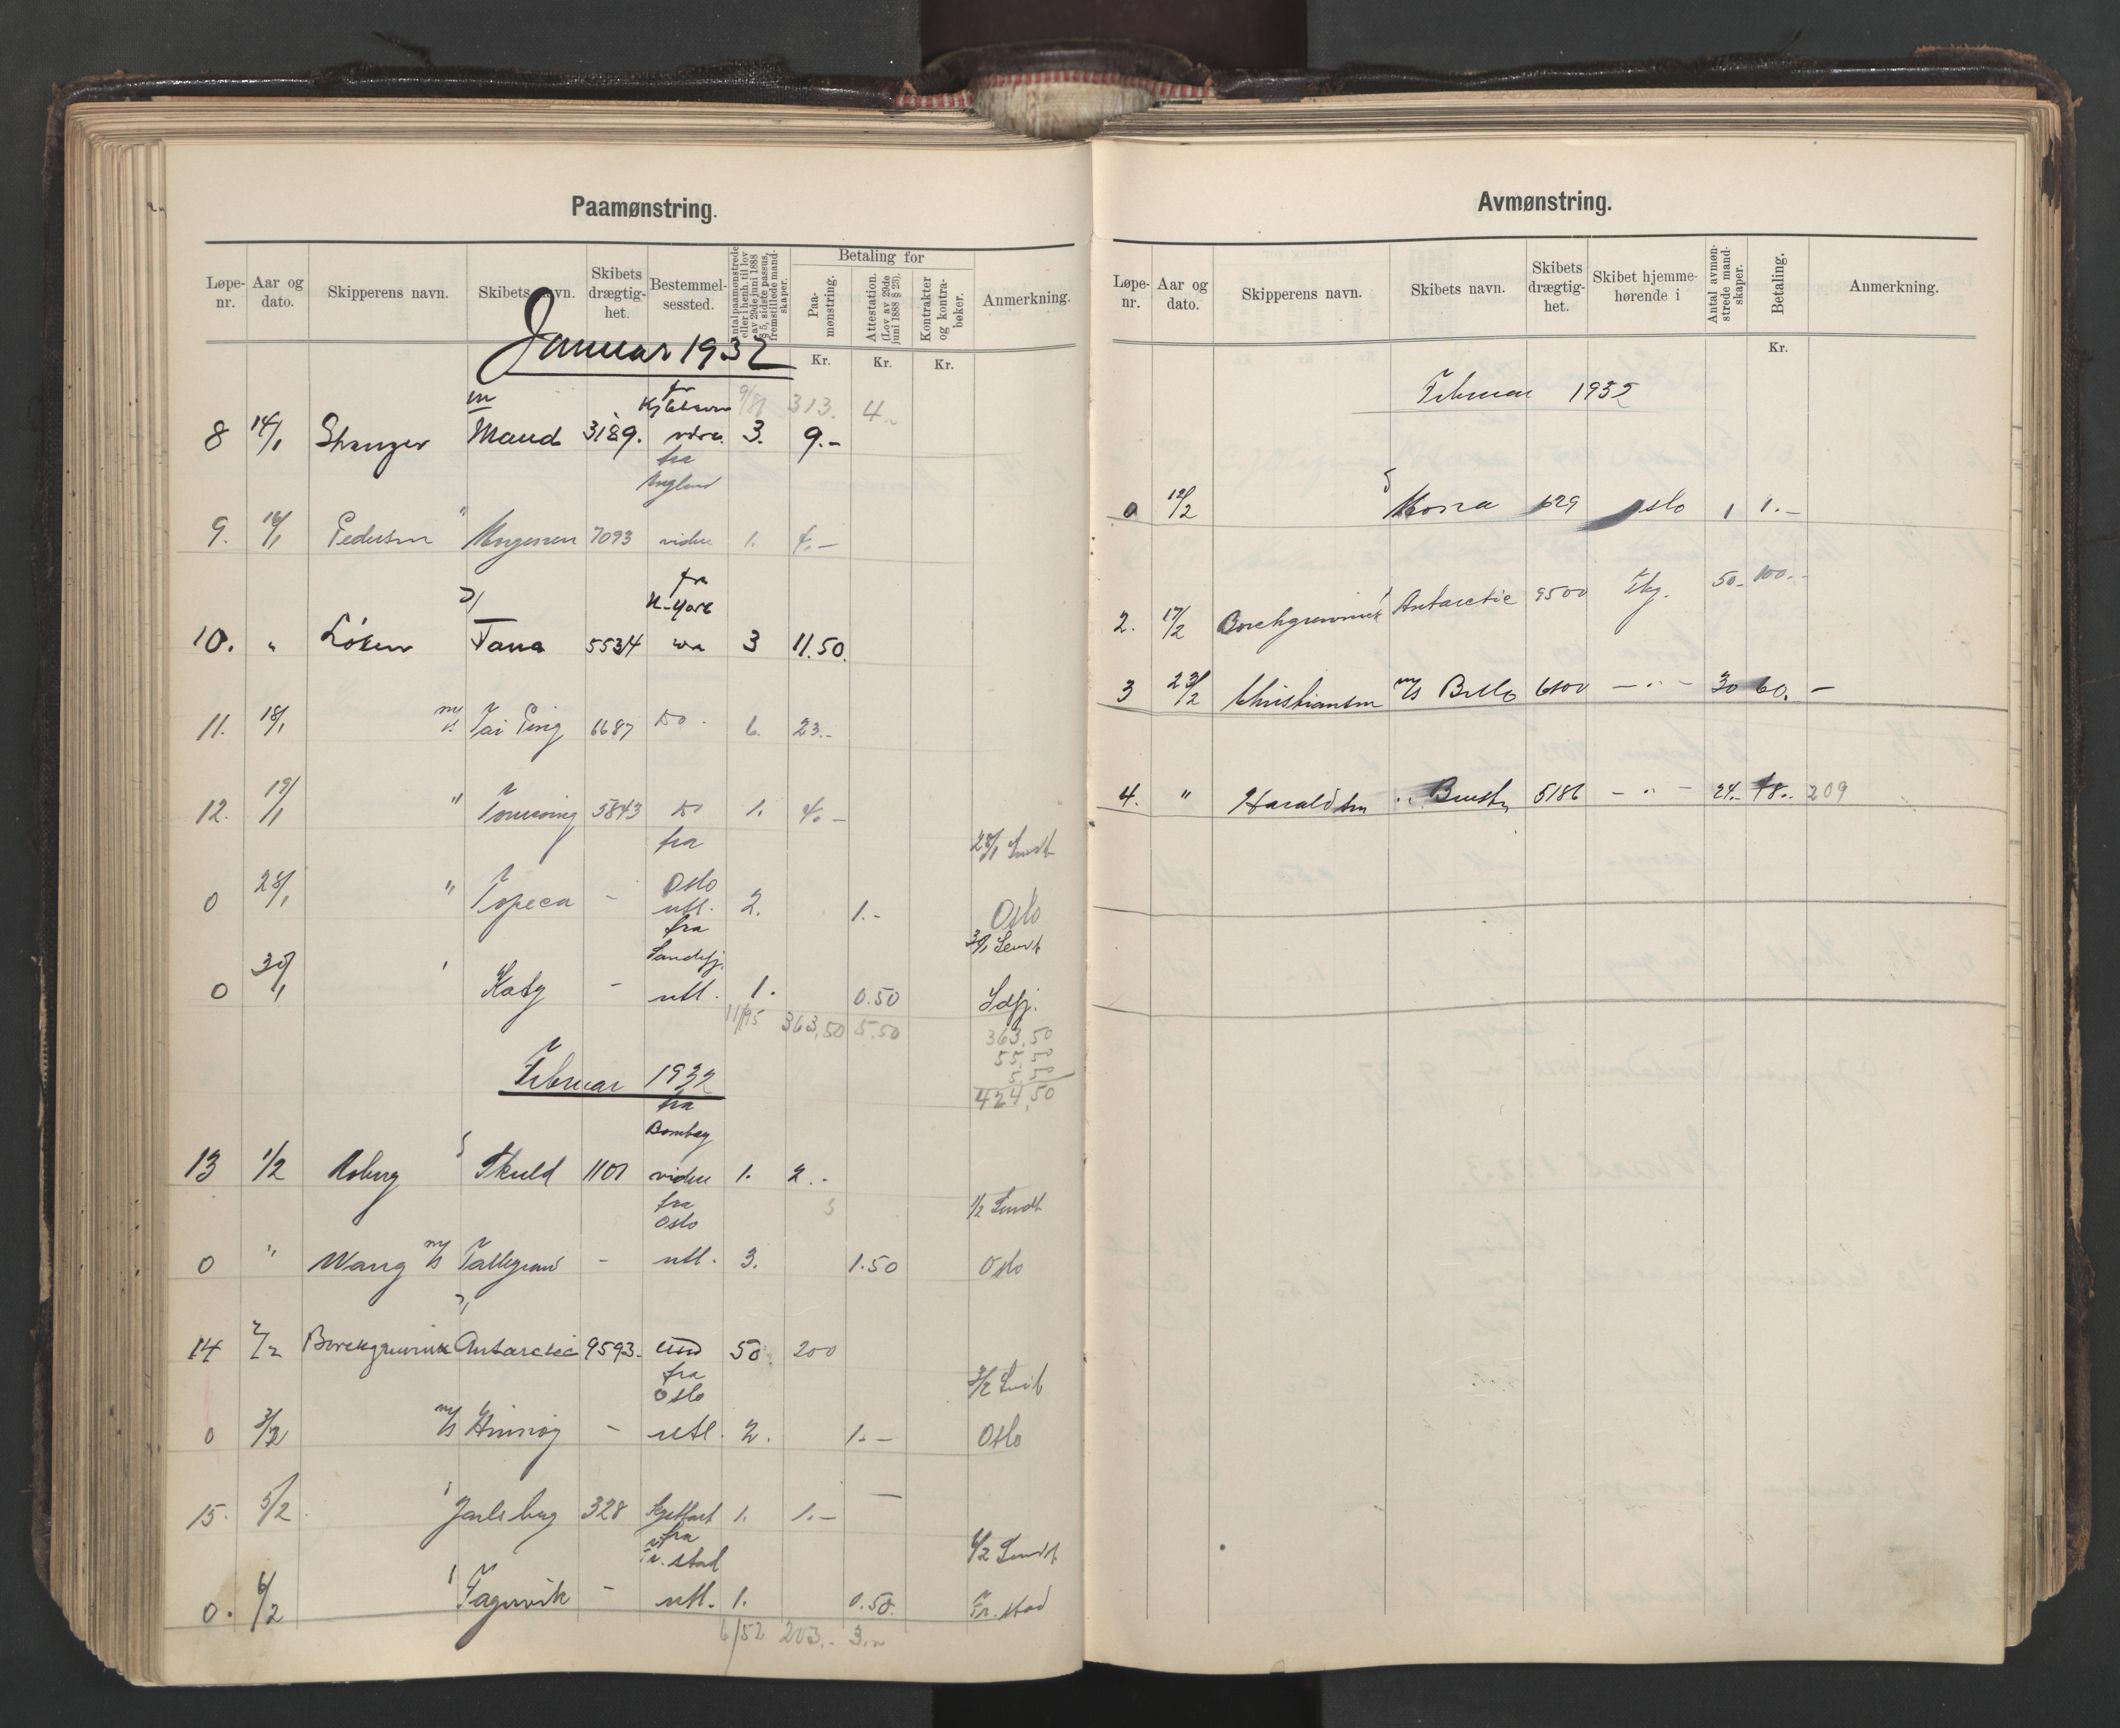 Paamønstring.
Løpe-nr. Aar og dato. Skipperens navn. Skibets navn. Skibets drægtighet. Bestemmelsessted. Antal paamønstrede eller i henh. til lov av 29de juni 1888 § 5, sidste passus, fremstillede mandskaper. Betaling for Paamønstring. Attestation. (Lov av 29de juni 1888 § 23). Kontrakter og kontrabøker. Anmerkning.
Kr. Kr. Kr.
Januar 1932
m fr 9/81 313. 4.
8 14/1 Maud 3189. 3. 9.-
fra
England
9. 16/1 Pedersen " 7093 videre 1. 4.-
fra
N-York
10. " Tana 5534 3 11.50.
11. 18/1 m/s Tai Ping 6687 Do. 6. 23.-
12. 19/1 " 5843 Do 1. 4.-
fra 28/1 Sendt
Oslo
0 28/1 " Topeca - utl. 2. 1.- Oslo
fra 30/1 Sendt
Sandefj.
0 30/1 Katy - utl. 1. 0.50 Sdfj.
11/95 363,50 5.50 363,50
55.50
5.50
424,50
Februar 1932
fra
Bombay
13 1/2 Skuld 1101 videre 1. 2.-
fra 1/2 Sendt
Oslo
0 " Wang m/s - utl. 3. 1.50 Oslo
14 2/2 Borchgrevink Antarctic 9593. 50 200
fra 3/2 Sendt
Oslo
0 3/2 m/s Hinnøy - utl. 2. 1.- Oslo
15. 5/2 Jarlsberg 328 1. 1.-
fra 6/2 Sendt
Fr. stad
0. 6/2 Fagervik - utl. 1. 0.50. Fr. stad
6/52 203.- 3.-
Avmønstring.
Løpe-nr. Aar og dato. Skipperens navn. Skibets navn. Skibets drægtighet. Skibet hjemmehørende i Antal avmønstrede mandskaper. Betaling. Anmerkning.
Kr.
Februar 1932
0 12/2 629 Oslo 1 1.-
2. 17/2 Borchgrevink Antarctic 9500 Tbg. 50- 100.-
3 23/2 Christiansen m/s 6400 - " - 30 60.-
4. " Haraldsen " 5186 - " - 24.- 48.- 209